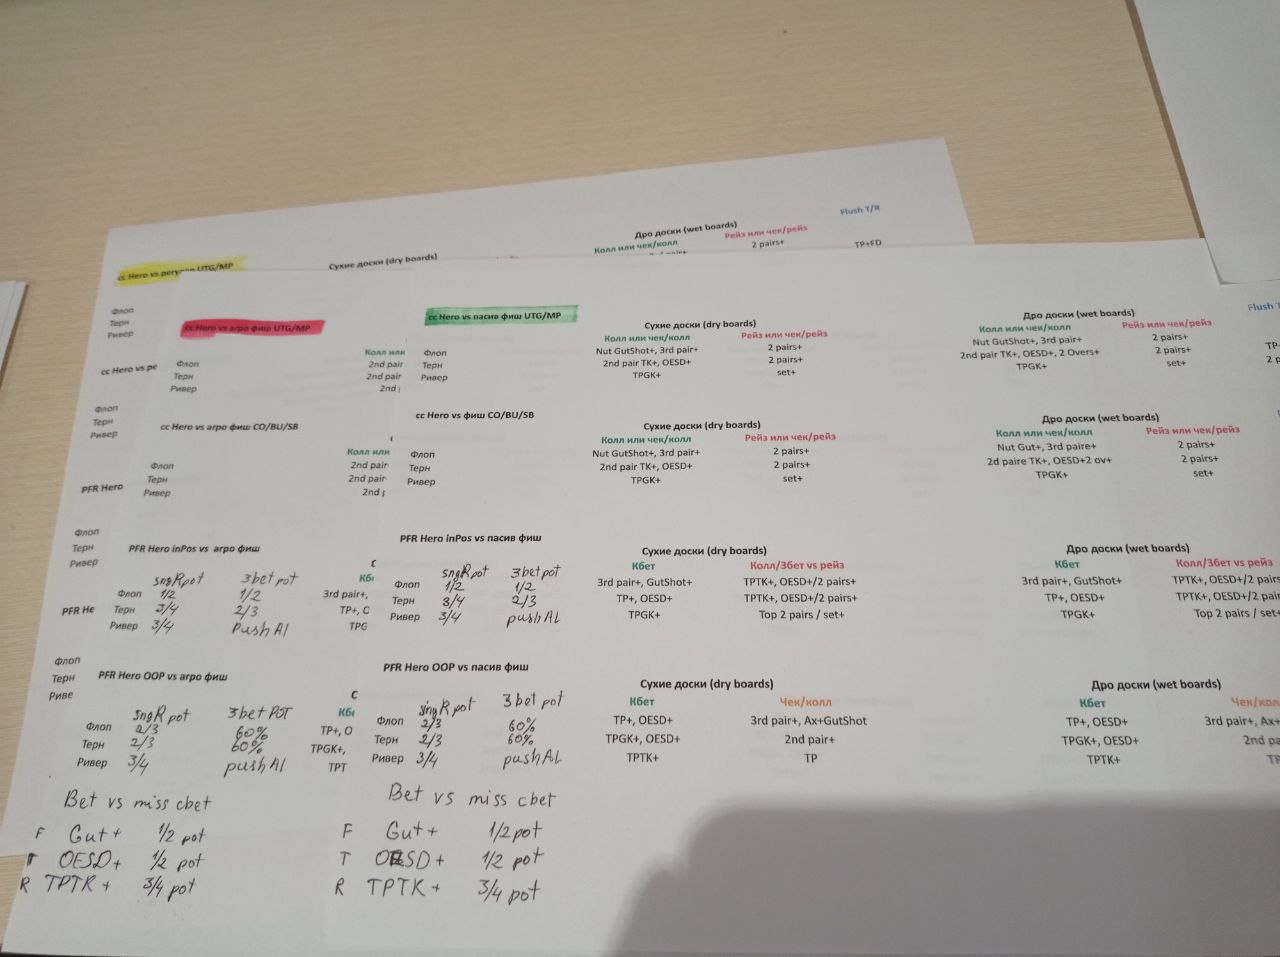 Flush T/R
Дро доски (wet boards)
Колл или чек/колл Рейз или чек/рейз
2 pairs+ TP+FD
cc Hero vs UTG/MP
Сухие доски (dry boards)
Флоп
Терн
Ривер
cc Hero vs
Флоп
Терн
Ривер
PFR Hero
Флоп
Терн
Ривер
PFR
Флоп
Терн
cc Hero vs агро фиш UTG/MP
Колл или
Флоп 2nd pair
Терн 2nd pair
Ривер 2nd
cc Hero vs агро фиш CO/BU/SB
Колл или
Флоп 2nd pair
Терн 2nd pair
Ривер 2nd
PFR Hero inPos vs агро фиш
sngRpot 3bet pot
Флоп 1/2 1/2 3rd pair+,
Терн 3/4 2/3 TP+,
Ривер 3/4 push Al
PFR Hero OOP vs агро фиш
sngR pot 3bet POT
Флоп 2/3 60% TP+,
Терн 2/3 60% TPGK+,
Ривер 3/4 push Al
Bet vs miss cbet
F Gut+ 1/2 pot
T OESD+ 1/2 pot
R TPTK+ 3/4 pot
cc Hero vs пасив фиш UTG/MP
Сухие доски (dry boards) Дро доски (wet boards) Flush
Колл или чек/колл Рейз или чек/рейз Колл или чек/колл Рейз или чек/рейз
Флоп Nut GutShot+, 3rd pair+ 2 pairs+ Nut GutShot+, 3rd pair+ 2 pairs+
Терн 2nd pair TK+, OESD+ 2 pairs+ 2nd pair TK+, OESD+, 2 Overs+ 2 pairs+
Ривер TPGK+ set+ TPGK+ set+
cc Hero vs фиш CO/BU/SB
Сухие доски (dry boards) Дро доски (wet boards)
Колл или чек/колл Рейз или чек/рейз Колл или чек/колл Рейз или чек/рейз
Флоп Nut GutShot+, 3rd pair+ 2 pairs+ Nut Gut+, 3rd paire+ 2 pairs+
Терн 2nd pair TK+, OESD+ 2 pairs+ 2d paire TK+, OESD+2 ov+ 2 pairs+
Ривер TPGK+ set+ TPGK+ set+
PFR Hero inPos vs пасив фиш
Сухие доски (dry boards) Дро доски (wet boards)
sngRpot 3bet pot Кбет Колл/3бет vs рейз Кбет Колл/3бет vs рейз
Флоп 1/2 1/2 3rd pair+, GutShot+ TPTK+, OESD+/2 pairs+ 3rd pair+, GutShot+ TPTK+, OESD+/2 pairs
Терн 3/4 2/3 TP+, OESD+ TPTK+, OESD+/2 pairs+ TP+, OESD+ TPTK+, OESD+/2 pairs
Ривер 3/4 push AL TPGK+ Top 2 pairs / set+ TPGK+ Top 2 pairs / set+
PFR Hero OOP vs пасив фиш
Сухие доски (dry boards) Дро доски (wet boards)
singR pot 3bet pot Кбет Чек/колл Кбет
Флоп 2/3 60% TP+, OESD+ 3rd pair+, Ax+GutShot TP+, OESD+ 3rd pair+,
Терн 2/3 60% TPGK+, OESD+ 2nd pair+ TPGK+, OESD+ 2nd
Ривер 3/4 push AL TPTK+ TP TPTK+
Bet vs miss cbet
F Gut+ 1/2 pot
T OESD+ 1/2 pot
R TPTK+ 3/4 pot